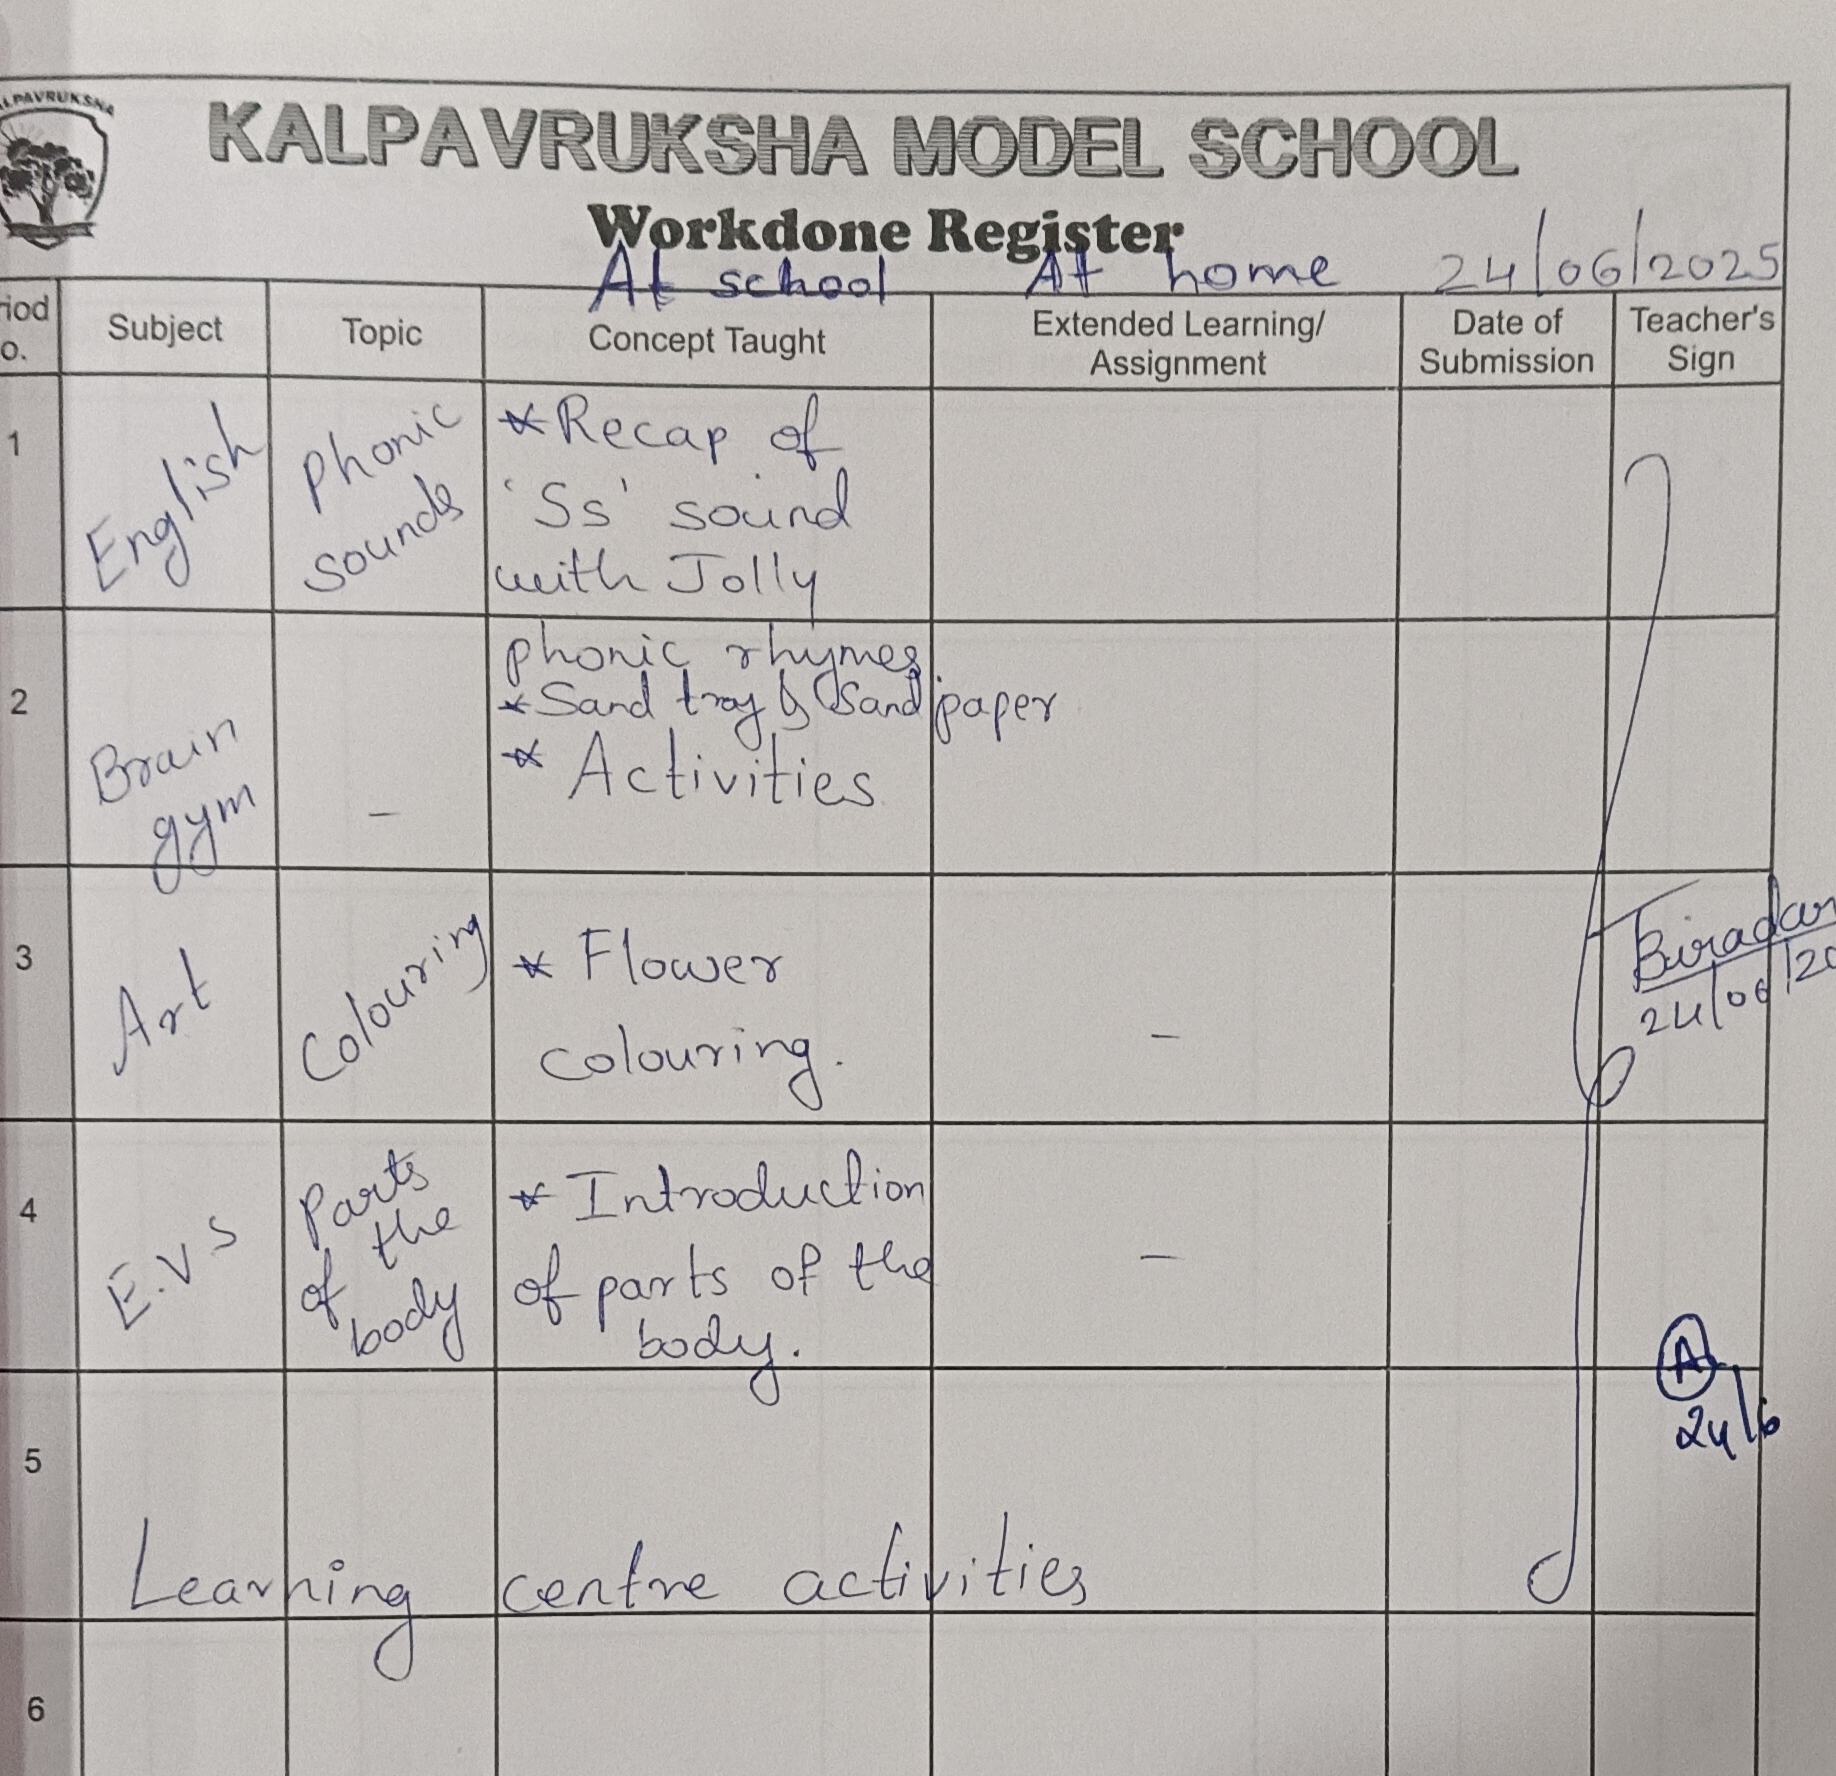 LPAVRUKSHA
KALPAVRUKSHA MODEL SCHOOL
Workdone Register
At school At home 24/06/2025
riod
o.
Subject
Topic
Concept Taught
Extended Learning/
Assignment
Date of
Submission
Teacher's
Sign
1
English
Phonic
sounds
* Recap of
'Ss' sound
with Jolly
phonic rhymes
* Sand tray & Sand paper
2
Brain
gym
–
* Activities
3
Art
Colouring
* Flower
colouring.
–
Biradar
24/06/20
4
E.V S
Parts
of the
body
* Introduction
of parts of the
body.
–
A
24/6
5
Learning centre activities
6